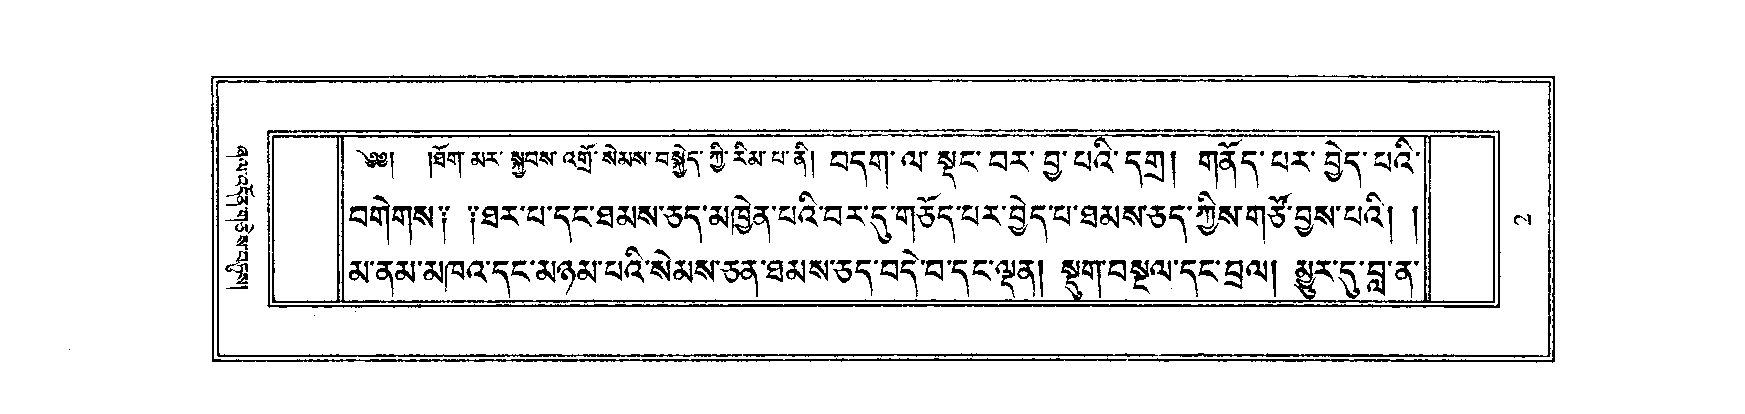 ༄༅། །ཐོག་མར་སྐྱབས་འགྲོ་སེམས་བསྐྱེད་ཀྱི་རིམ་པ་ནི། བདག་ལ་སྡང་བར་བྱ་པའི་དགྲ། གནོད་པར་བྱེད་པའི་
བགེགས༔ ༔ཐར་པ་དང་ཐམས་ཅད་མཁྱེན་པའི་བར་དུ་གཅོད་པར་བྱེད་པ་ཐམས་ཅད་ཀྱིས་གཙོ་བྱས་པའི། །
མ་ནམ་མཁའ་དང་མཉམ་པའི་སེམས་ཅན་ཐམས་ཅད་བདེ་བ་དང་ལྡན། སྡུག་བསྔལ་དང་བྲལ། མྱུར་དུ་བླ་ན་